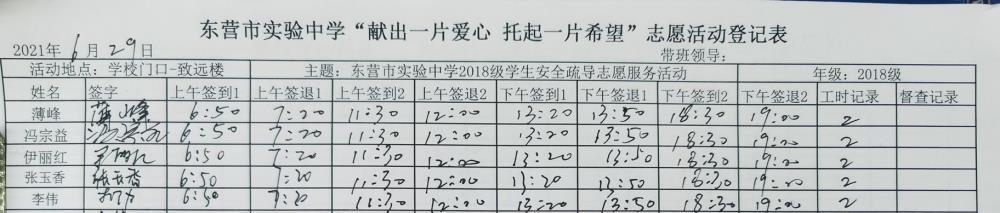 东营市实验中学“献出一片爱心 托起一片希望”志愿活动登记表
2021年6月29日 带班领导：
活动地点：学校门口-致远楼 主题：东营市实验中学2018级学生安全疏导志愿服务活动 年级：2018级
姓名 签字 上午签到1 上午签退1 上午签到2 上午签退2 下午签到1 下午签退1 下午签到2 下午签退2 工时记录 督查记录
薄峰 薄峰 6:50 7:20 11:30 12:00 13:20 13:50 18:30 19:00 2
冯宗益 冯宗益 6:50 7:20 11:30 12:00 13:20 13:50 18:30 19:00 2
伊丽红 6:50 7:20 11:30 12:00 13:20 13:50 18:30 19:00 2
张玉香 张玉香 6:50 7:20 11:30 12:00 13:20 13:50 18:30 19:00 2
李伟 6:50 7:20 11:30 12:00 13:20 13:50 18:30 19:00 2